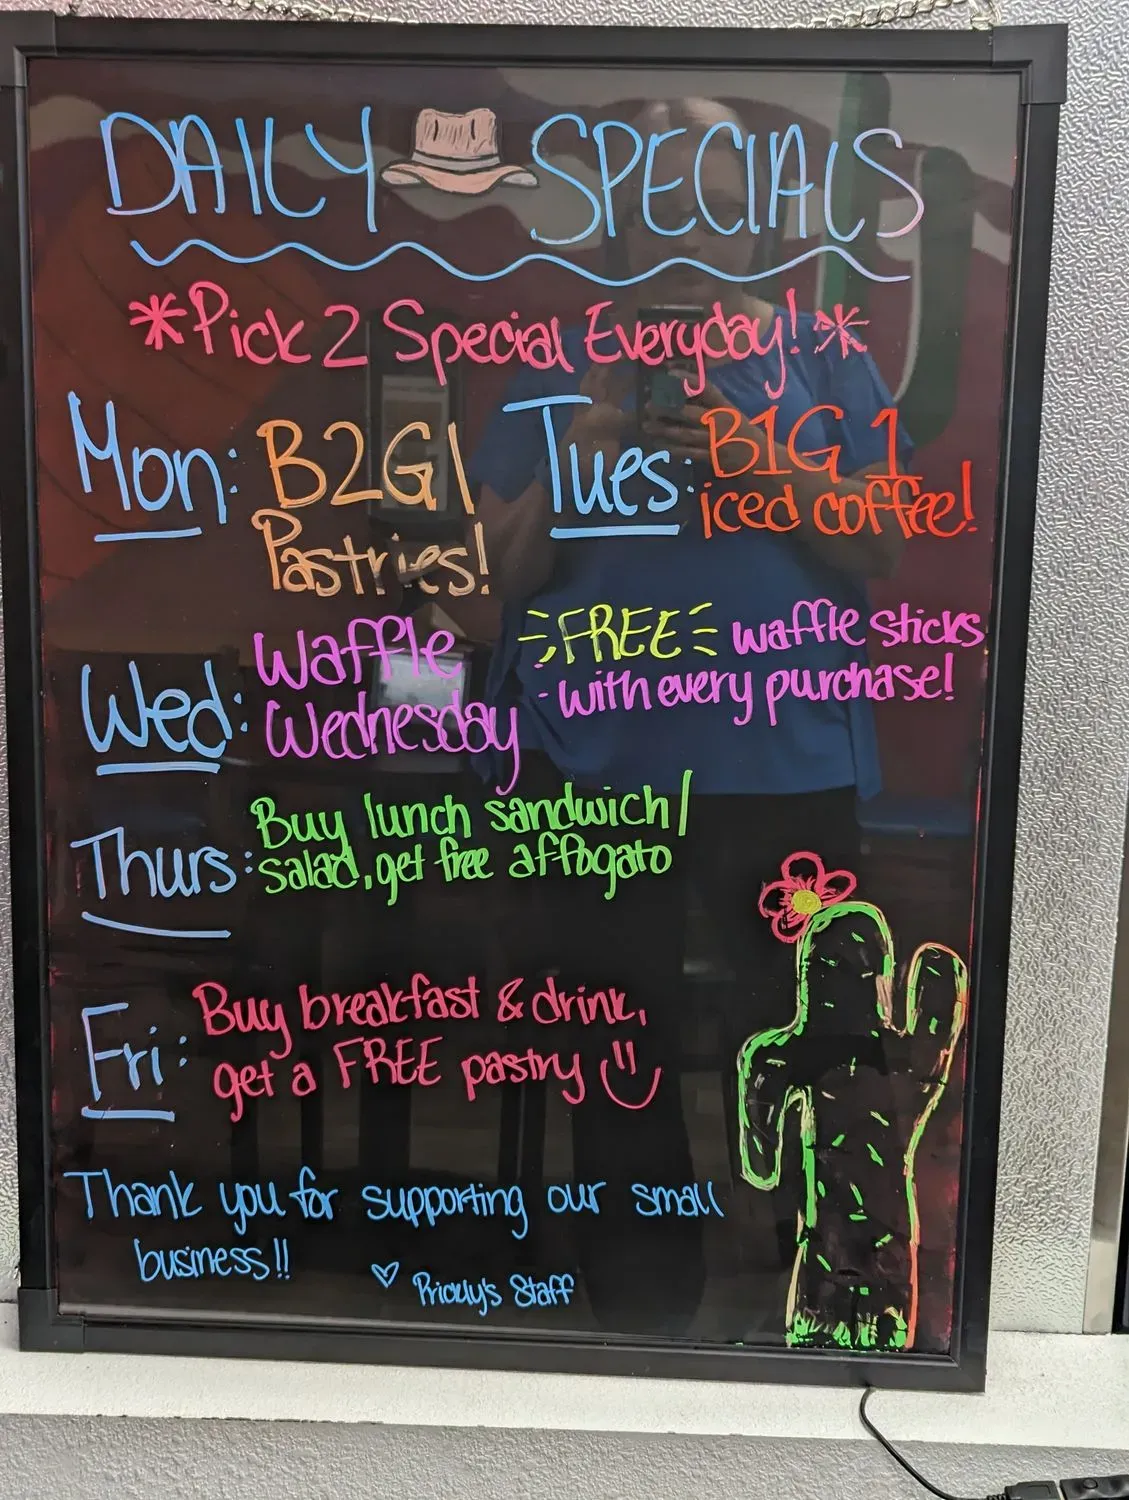 DAILY SPECIALS
*Pick 2 Special Everyday!*
Mon: B2G1
Pastries!
Tues: B1G 1
iced coffee!
Wed: Waffle
Wednesday
FREE waffle sticks
with every purchase!
Thurs: Buy lunch sandwich/
salad, get free affogato
Fri: Buy breakfast & drink,
get a FREE pastry
Thank you for supporting our small
business!!
♡ Prickly's Staff